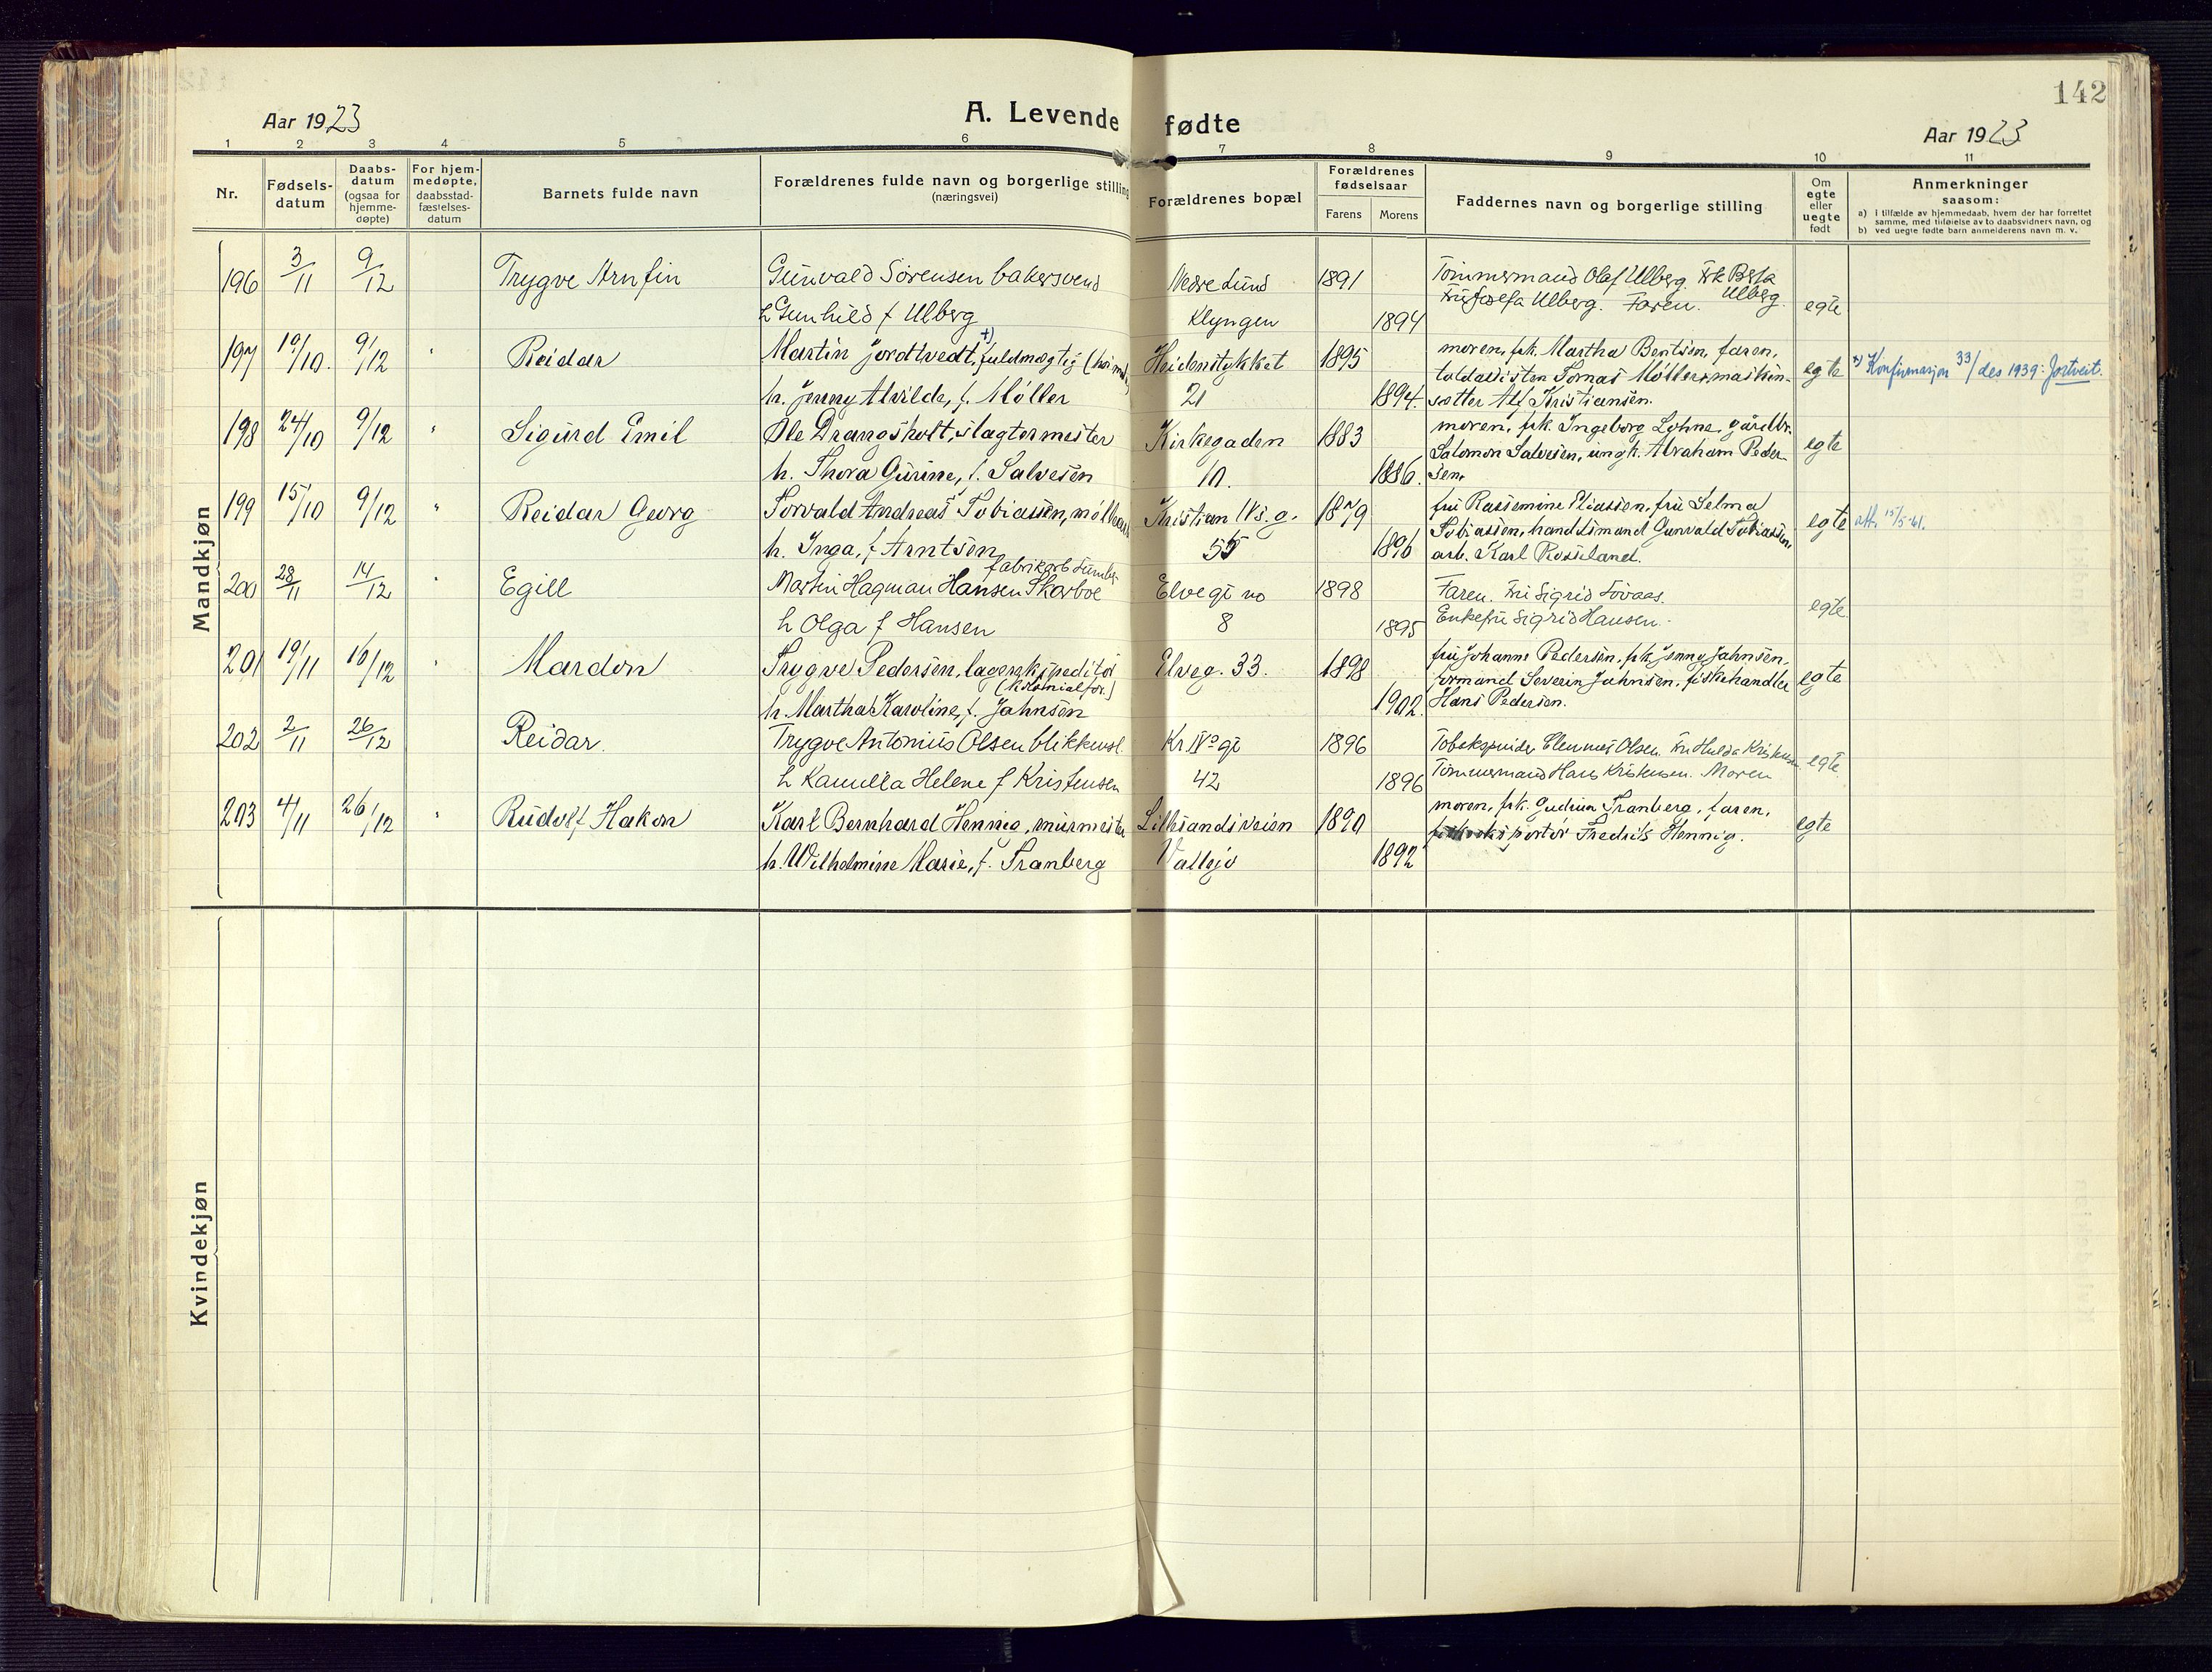 142
Aar 1923
A. Levende fødte
Aar 1923
1 2 3 4 5 6 7 8 9 10 11
Nr.
Fødsels-
datum
Daabs-
datum
(ogsaa for
hjemme-
døpte)
For hjem-
medøpte,
daabsstad-
fæstelses-
datum
Barnets fulde navn
Forældrenes fulde navn og borgerlige stilling
(næringsvei)
Forældrenes bopæl
Forældrenes
fødselsaar
Farens
Morens
Faddernes navn og borgerlige stilling
Om
egte
eller
uegte
født
Anmerkninger
saasom:
a) I tilfælde av hjemmedaab, hvem der har forrettet
samme, med tilføielse av to daabsvidners navn, og
b) ved uegte fødte barn anmelderens navn m. v.
Mandkjøn
196 3/11 9/12 Trygve Arnfin Gunvald Sørensen bakersvend Nedre Lund 1891 Tømmermand Olaf Ulberg. Frk Ulberg.
h Gunhild f Ulberg Klyngen 1894 Fru Ulberg. Faren. egte
197 19/10. 9/12 " Reidar Martin Jordtvedt, +) fuldmægtig Heidenstykket 1895 moren, frk. Martha Bentsen, faren,
toldassisten Tomas Møller, maskin- egte +) Konfirmasjon 33/des 1939: Jortveit.
h. Jenny Alvilde, f. Møller 21 1894. sætter Alf Kristiansen.
198 24/10 9/12 " Sigurd Emil Ole Drangsholt, slagtermester Kirkegaden 1883 moren, frk. Ingeborg Lohne, gårdbr.
Salomon Salvesen, ungk. Abraham Peder- egte
h. Thora Gurine, f. Salvesen 10. 1886. sen.
199 15/10 9/12 " Reidar Georg Torvald Andreas Tobiassen, Kristian IVs. g. 1879 fru Rassemine Eliassen, fru Selma
Tobiassen, handelsmand Gunvald Tobiassen, egte att. 15/5-41.
h. Inga, f Arntsen 55 1896 arb. Karl Rosseland.
fabrikarb
200 28/11 14/12 " Egill Martin Hagman Hansen Skarboe Elvegt no 1898 Faren. Fru Sigrid
h Olga f Hansen 8 1895 Enkefru Sigrid Hansen. egte
201 19/11 16/12 " Mardon Trygve Pedersen, lagerekspeditør Elveg. 33. 1898 fru Johanne Pedersen, frk. Jenny Jahnsen,
(kolonialfor.) formand Severin Jahnsen, fiskehandler egte
h. Martha Karoline, f. Jahnsen 1902. Hans Pedersen.
202 2/11 26/12 Reidar. Trygve Antonius Olsen blikkensl. Kr IVs gt 1896 Olsen. Fru Hulda Kristensen
h Kamilla Helene f Kristensen 42 1896 Tømmermand Hans Kristensen. Moren egte
203 4/11 26/12 " Rudolf Hakon Karl Bernhard Hennig, murmester Lillesandsveien 1890 moren, frk. Gudrun Tranberg, faren,
Fredrik Hennig. egte
h. Wilhelmine Marie, f. Tranberg 1892
Kvindekjøn